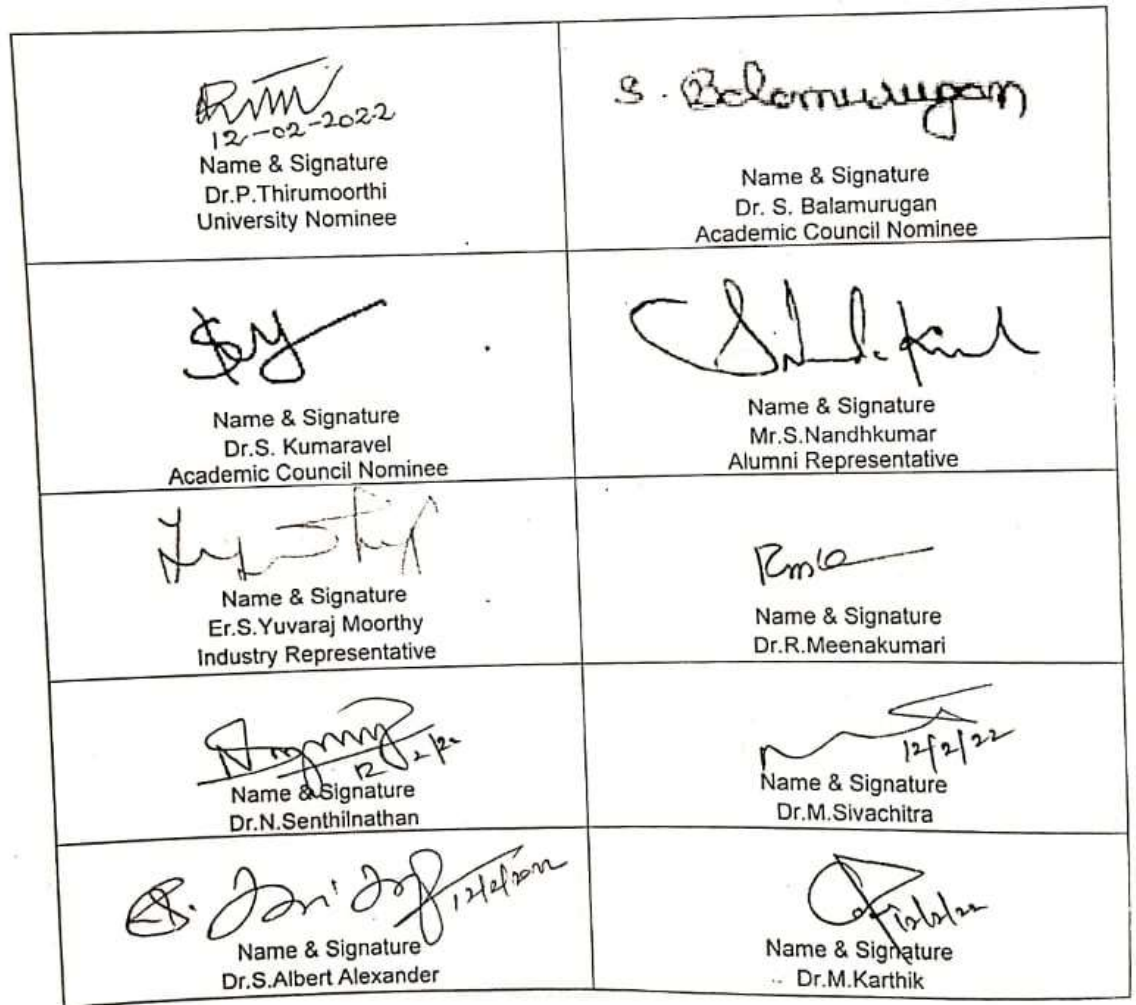 12-02-2022
Name & Signature
Dr.P.Thirumoorthi
University Nominee
S. Balamurugan
Name & Signature
Dr. S. Balamurugan
Academic Council Nominee
Name & Signature
Dr.S. Kumaravel
Academic Council Nominee
Name & Signature
Mr.S.Nandhkumar
Alumni Representative
Name & Signature
Er.S.Yuvaraj Moorthy
Industry Representative
Name & Signature
Dr.R.Meenakumari
12/2/22
Name & Signature
Dr.N.Senthilnathan
12/2/22
Name & Signature
Dr.M.Sivachitra
12/2/2022
Name & Signature
Dr.S.Albert Alexander
12/2/22
Name & Signature
Dr.M.Karthik